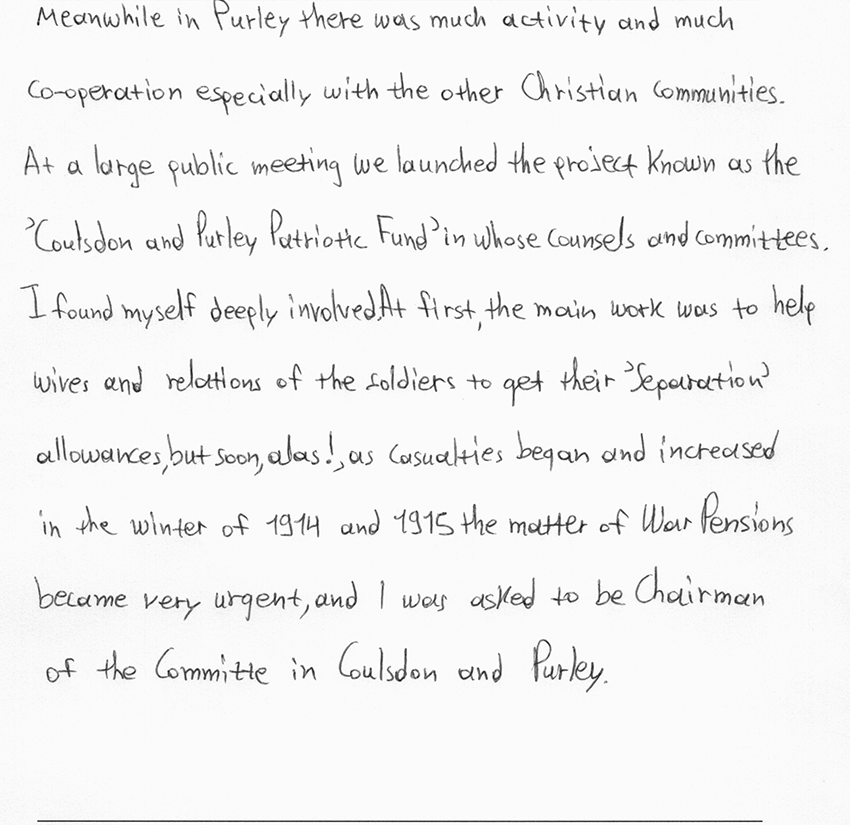 Meanwhile in Purley there was much activity and much
Co-operation especially with the other Christian Communities.
At a large public meeting we launched the project known as the
'Coulsdon and Purley Patriotic Fund' in whose Counsels and committees.
I found myself deeply involved. At first, the main work was to help
wives and relations of the soldiers to get their 'Separation'
allowances, but soon, alas!, as Casualties began and increased
in the winter of 1914 and 1915 the matter of War Pensions
became very urgent, and I was asked to be Chairman
of the Committe in Coulsdon and Purley.